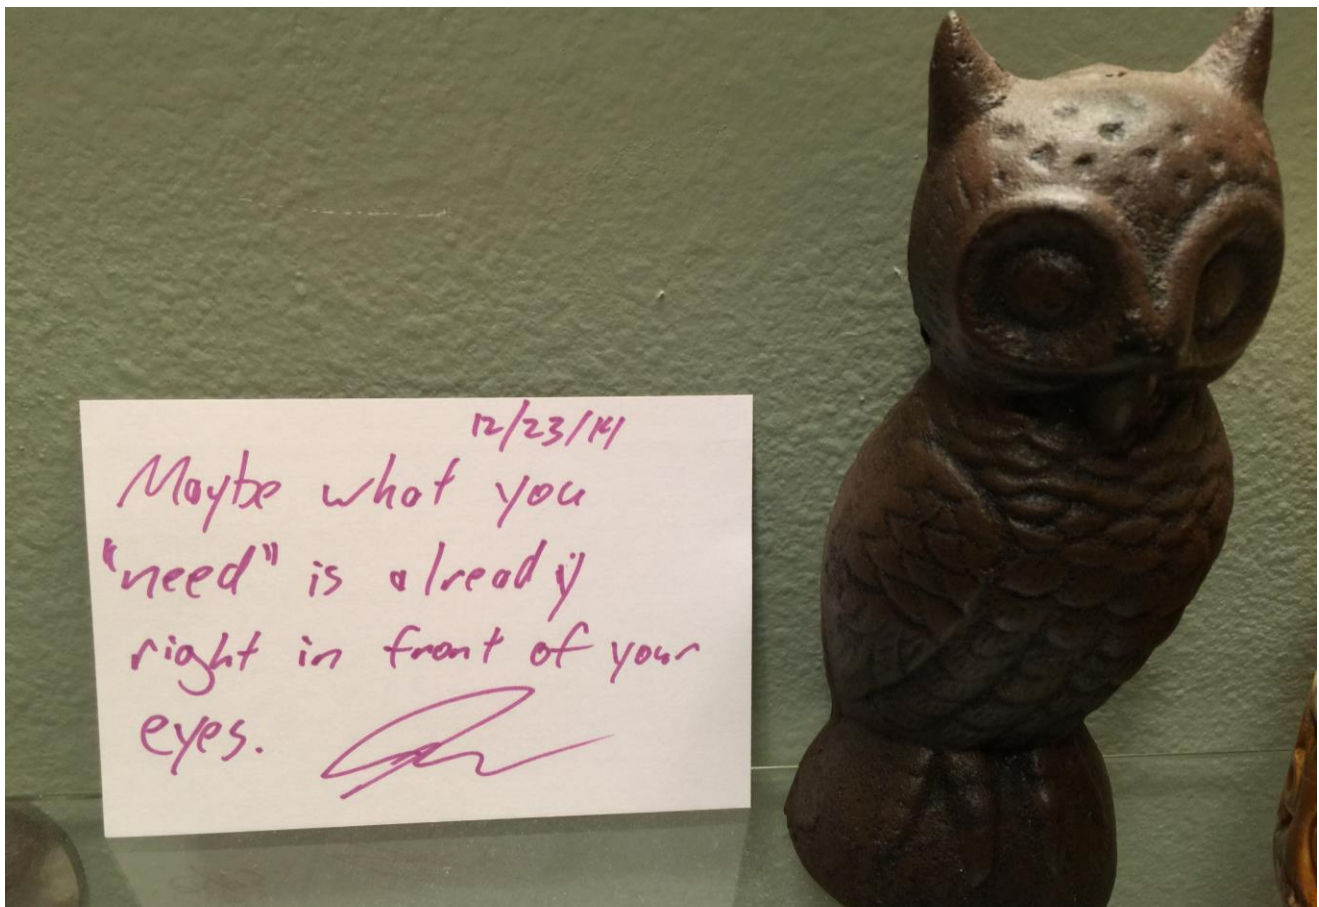 12/23/14
Maybe what you
"need" is already
right in front of your
eyes.